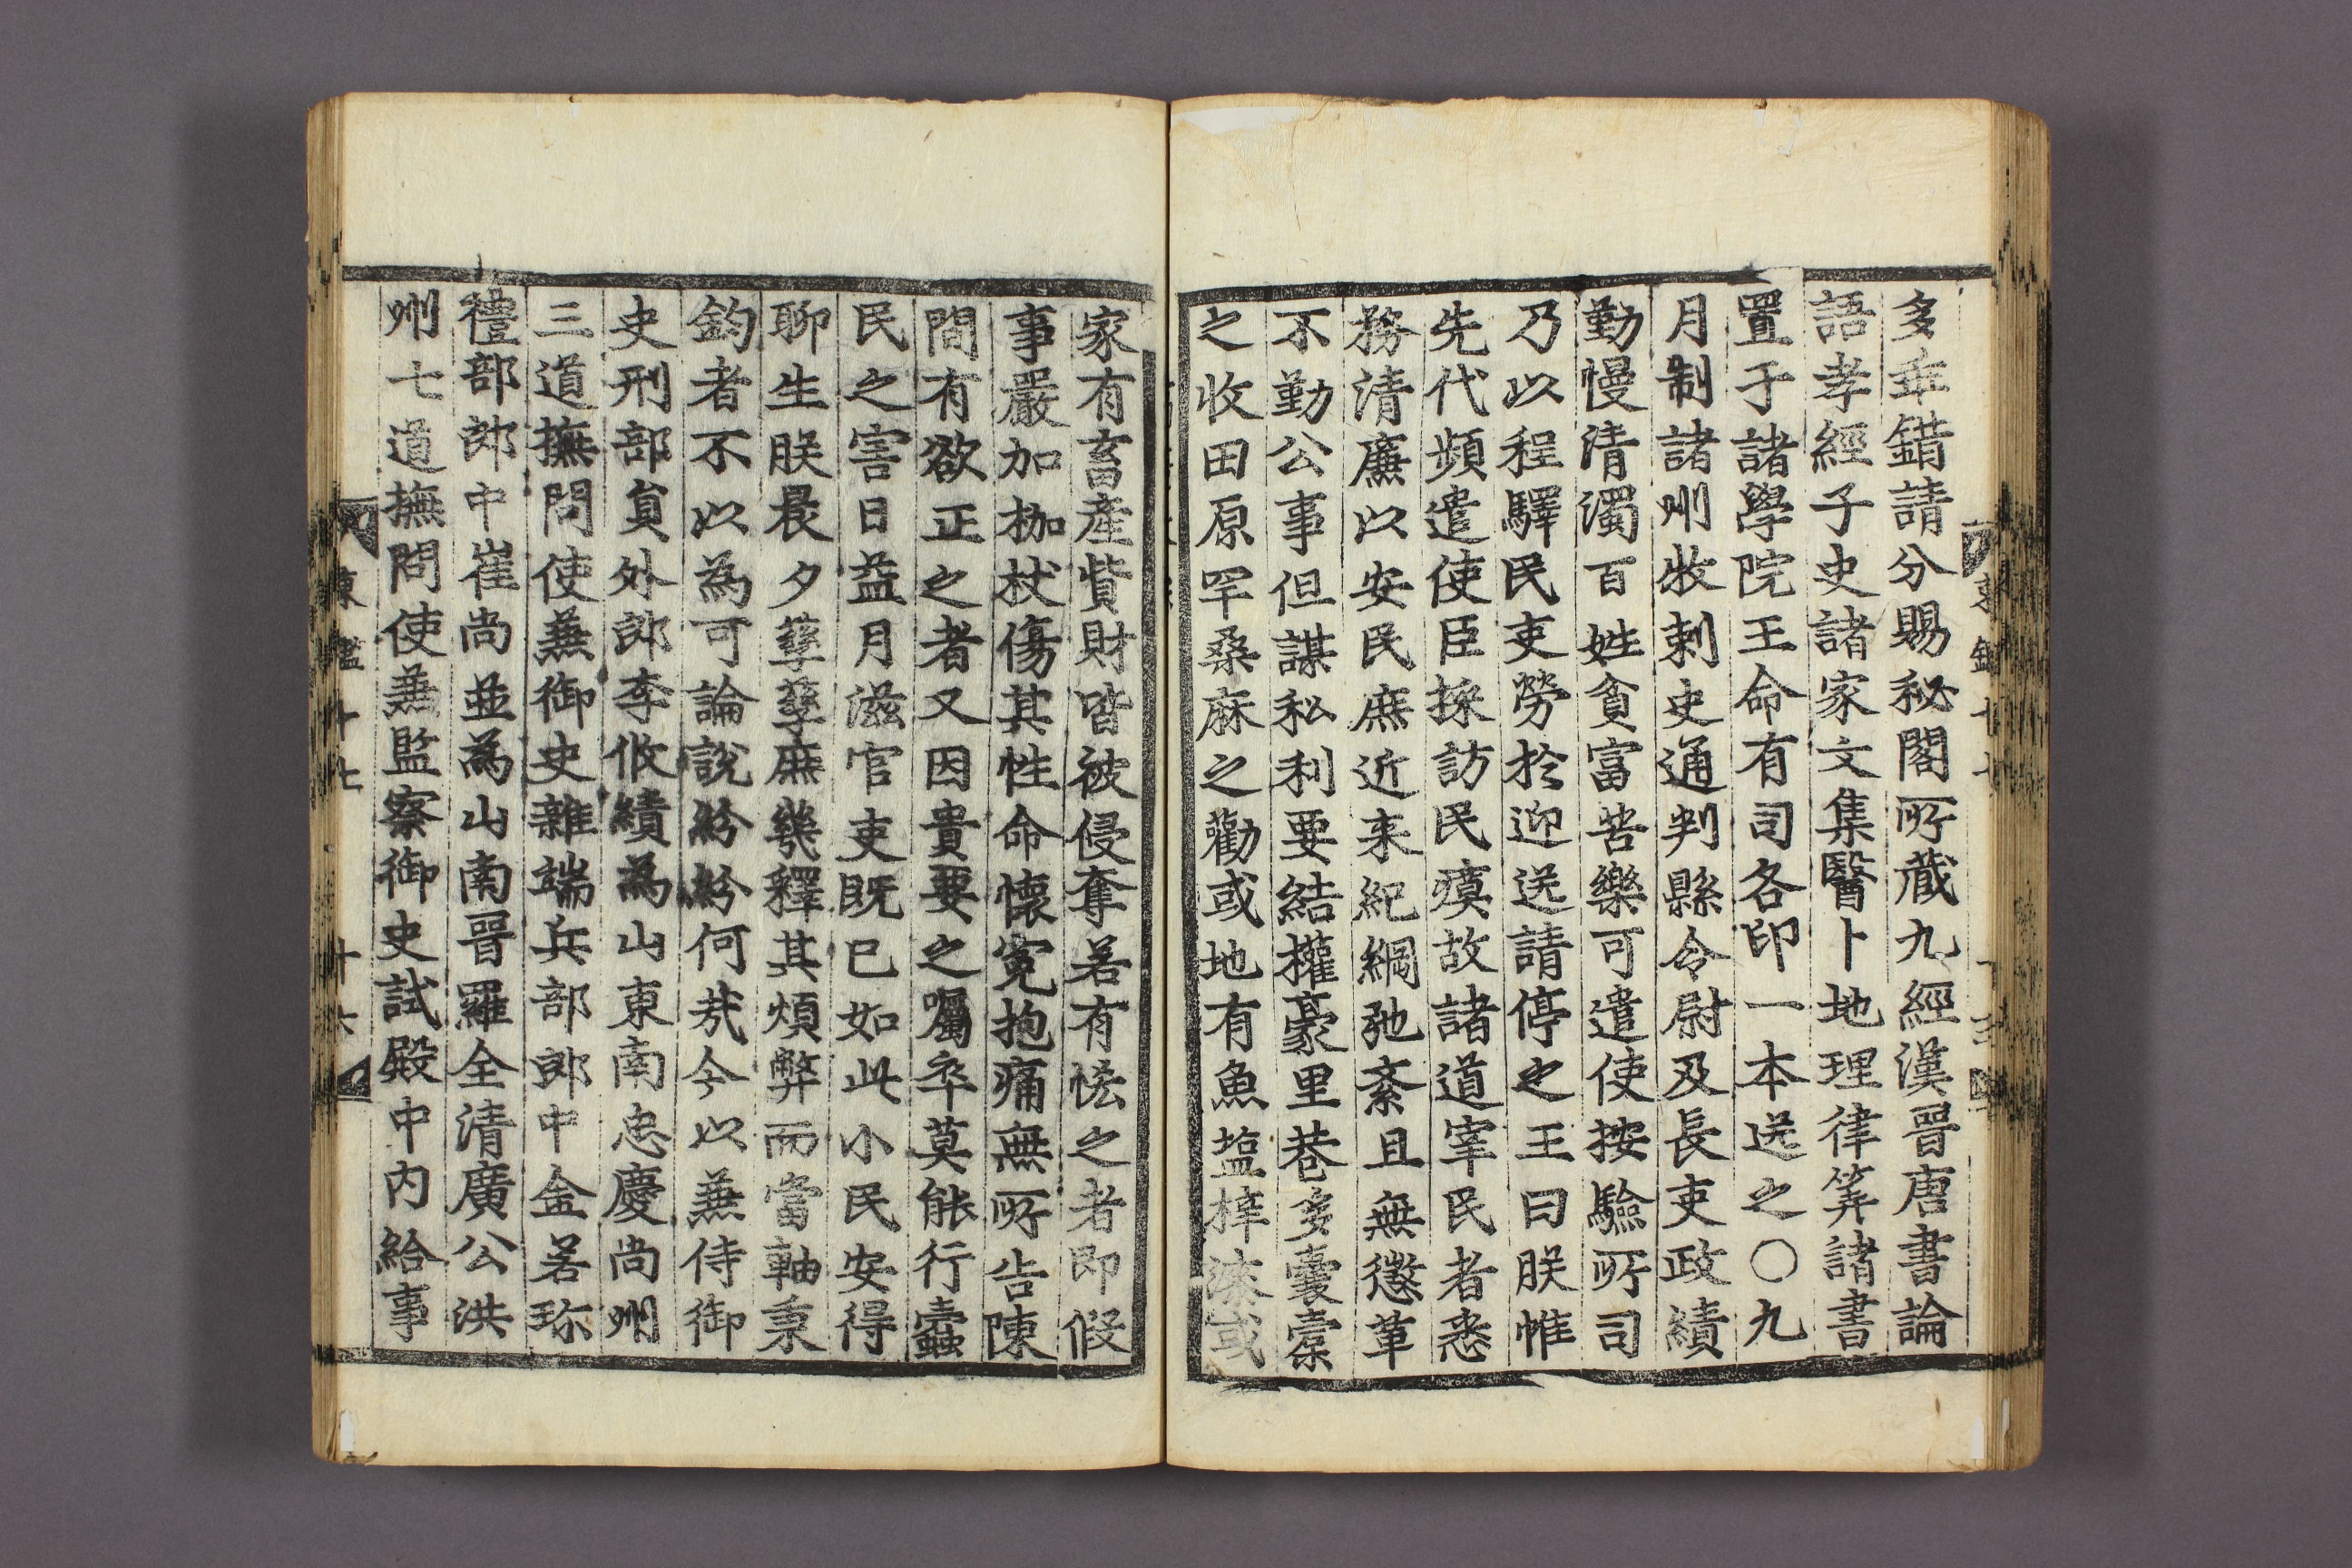 多乖錯請分賜秘閣所藏九經漢晉唐書論
語孝經子史諸家文集醫卜地理律筭諸書
置于諸學院王命有司各印一本送之○九
月制諸州牧刺史通判縣令尉及長吏政績
勤慢清濁百姓貧富苦樂可遣使按驗所司
乃以程驛民吏勞於迎送請停之王曰朕惟
先代頻遣使臣採訪民瘼故諸道宰民者悉
務清廉以安民庶近来紀綱弛紊且無懲革
不勤公事但謀私利要結權豪里巷多囊橐
之收田原罕桑麻之勸或地有魚塩梓漆或
家有畜産貲財皆被侵奪若有恡之者即假
事嚴加枷杖傷其性命懷寃抱痛無所告陳
間有欲正之者又因貴要之囑卒莫能行蠹
民之害日益月滋官吏既已如此小民安得
聊生朕晨夕孳孳庶幾釋其煩弊而當軸秉
鈞者不以為可論說紛紛何㢤今以兼侍御
史刑部負外郎李攸績為山東南忠慶尚州
三道撫問使兼御史雜端兵部郎中金若珎
禮部郎中崔尚並為山南晉羅全清廣公洪
州七道撫問使兼監察御史試殿中內給事
東鑑十七
十六